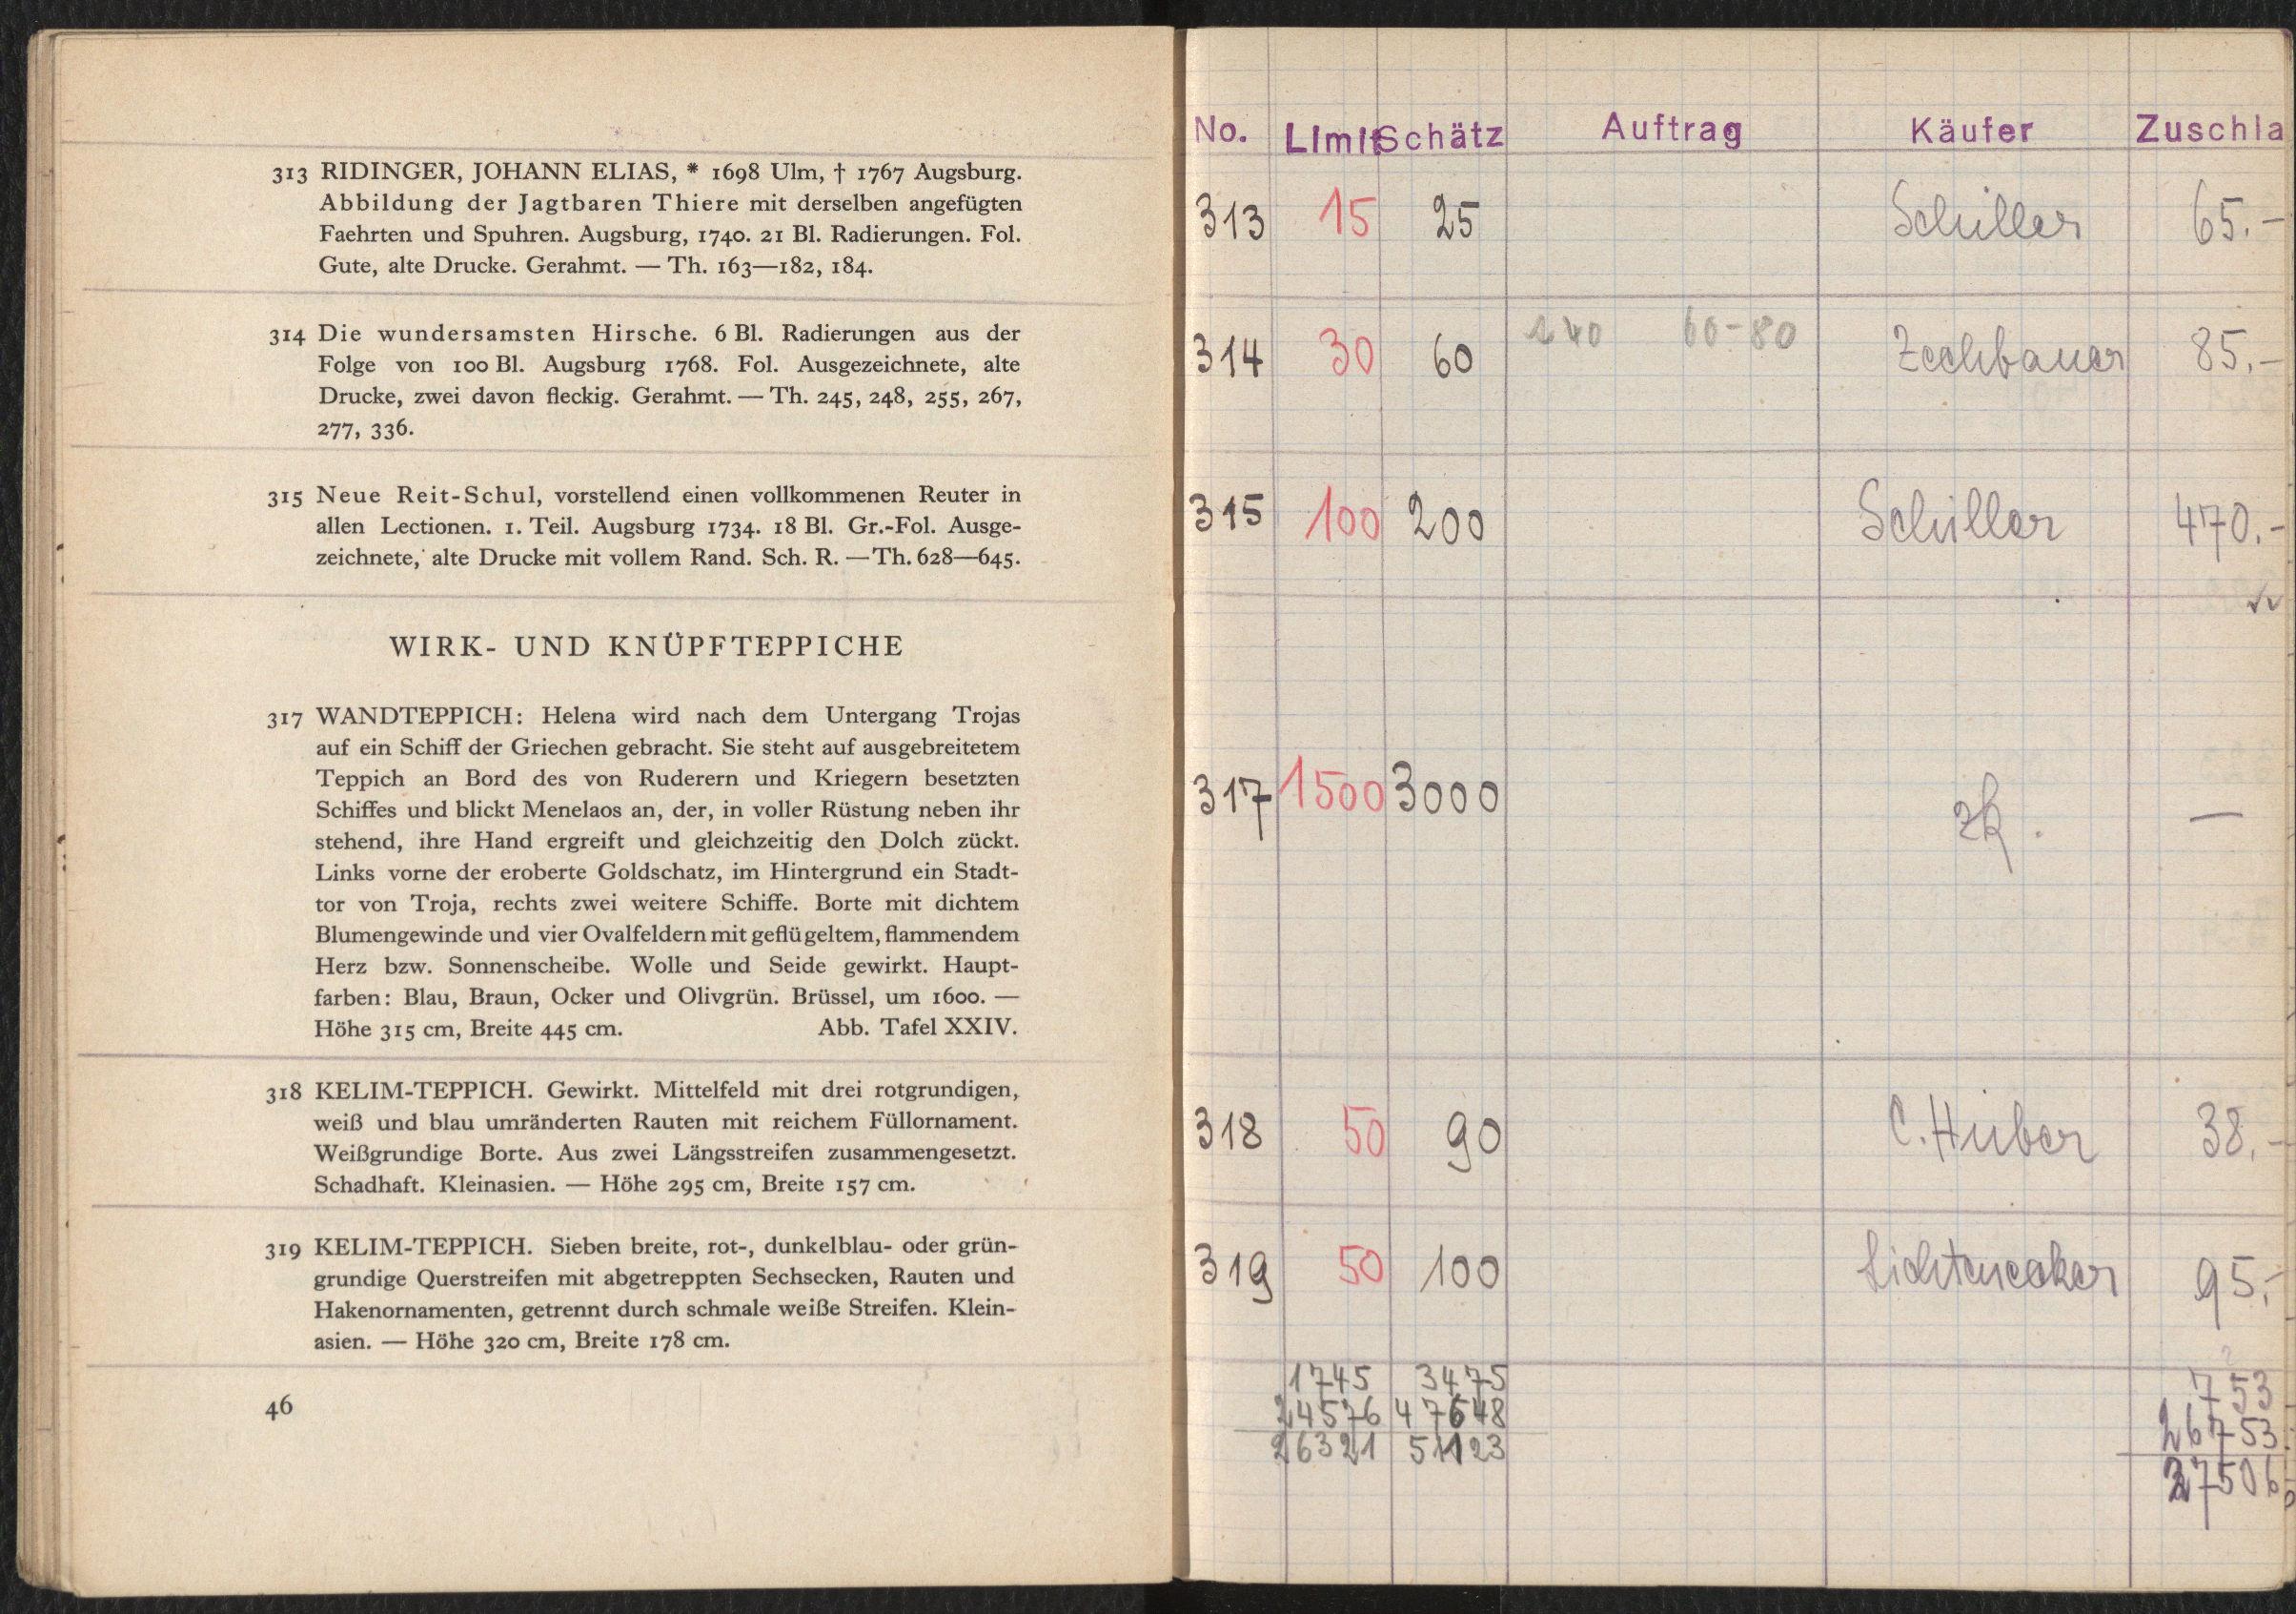 313 RIDINGER, JOHANN ELIAS, * 1698 Ulm, † 1767 Augsburg.
Abbildung der Jagtbaren Thiere mit derselben angefügten
Faehrten und Spuhren. Augsburg, 1740. 21 Bl. Radierungen. Fol.
Gute, alte Drucke. Gerahmt. — Th. 163—182, 184.
314 Die wundersamsten Hirsche. 6 Bl. Radierungen aus der
Folge von 100 Bl. Augsburg 1768. Fol. Ausgezeichnete, alte
Drucke, zwei davon fleckig. Gerahmt. — Th. 245, 248, 255, 267,
277, 336.
315 Neue Reit-Schul, vorstellend einen vollkommenen Reuter in
allen Lectionen. 1. Teil. Augsburg 1734. 18 Bl. Gr.-Fol. Ausge-
zeichnete, alte Drucke mit vollem Rand. Sch. R. — Th. 628—645.
WIRK- UND KNÜPFTEPPICHE
317 WANDTEPPICH: Helena wird nach dem Untergang Trojas
auf ein Schiff der Griechen gebracht. Sie steht auf ausgebreitetem
Teppich an Bord des von Ruderern und Kriegern besetzten
Schiffes und blickt Menelaos an, der, in voller Rüstung neben ihr
stehend, ihre Hand ergreift und gleichzeitig den Dolch zückt.
Links vorne der eroberte Goldschatz, im Hintergrund ein Stadt-
tor von Troja, rechts zwei weitere Schiffe. Borte mit dichtem
Blumengewinde und vier Ovalfeldern mit geflügeltem, flammendem
Herz bzw. Sonnenscheibe. Wolle und Seide gewirkt. Haupt-
farben: Blau, Braun, Ocker und Olivgrün. Brüssel, um 1600. —
Höhe 315 cm, Breite 445 cm. Abb. Tafel XXIV.
318 KELIM-TEPPICH. Gewirkt. Mittelfeld mit drei rotgrundigen,
weiß und blau umränderten Rauten mit reichem Füllornament.
Weißgrundige Borte. Aus zwei Längsstreifen zusammengesetzt.
Schadhaft. Kleinasien. — Höhe 295 cm, Breite 157 cm.
319 KELIM-TEPPICH. Sieben breite, rot-, dunkelblau- oder grün-
grundige Querstreifen mit abgetreppten Sechsecken, Rauten und
Hakenornamenten, getrennt durch schmale weiße Streifen. Klein-
asien. — Höhe 320 cm, Breite 178 cm.
46
No. Limit Schätz Auftrag Käufer Zuschla
313 15 25 Schiller 65.-
314 30 60 240 60-80 Zechbauer 85.-
315 100 200 Schiller 470.-
317 1500 3000 zk. —
318 50 90 C. Huber 38.-
319 50 100 Lichtenecker 95.-
1745 3475 753
24576 47648 26753
26321 51123 27506